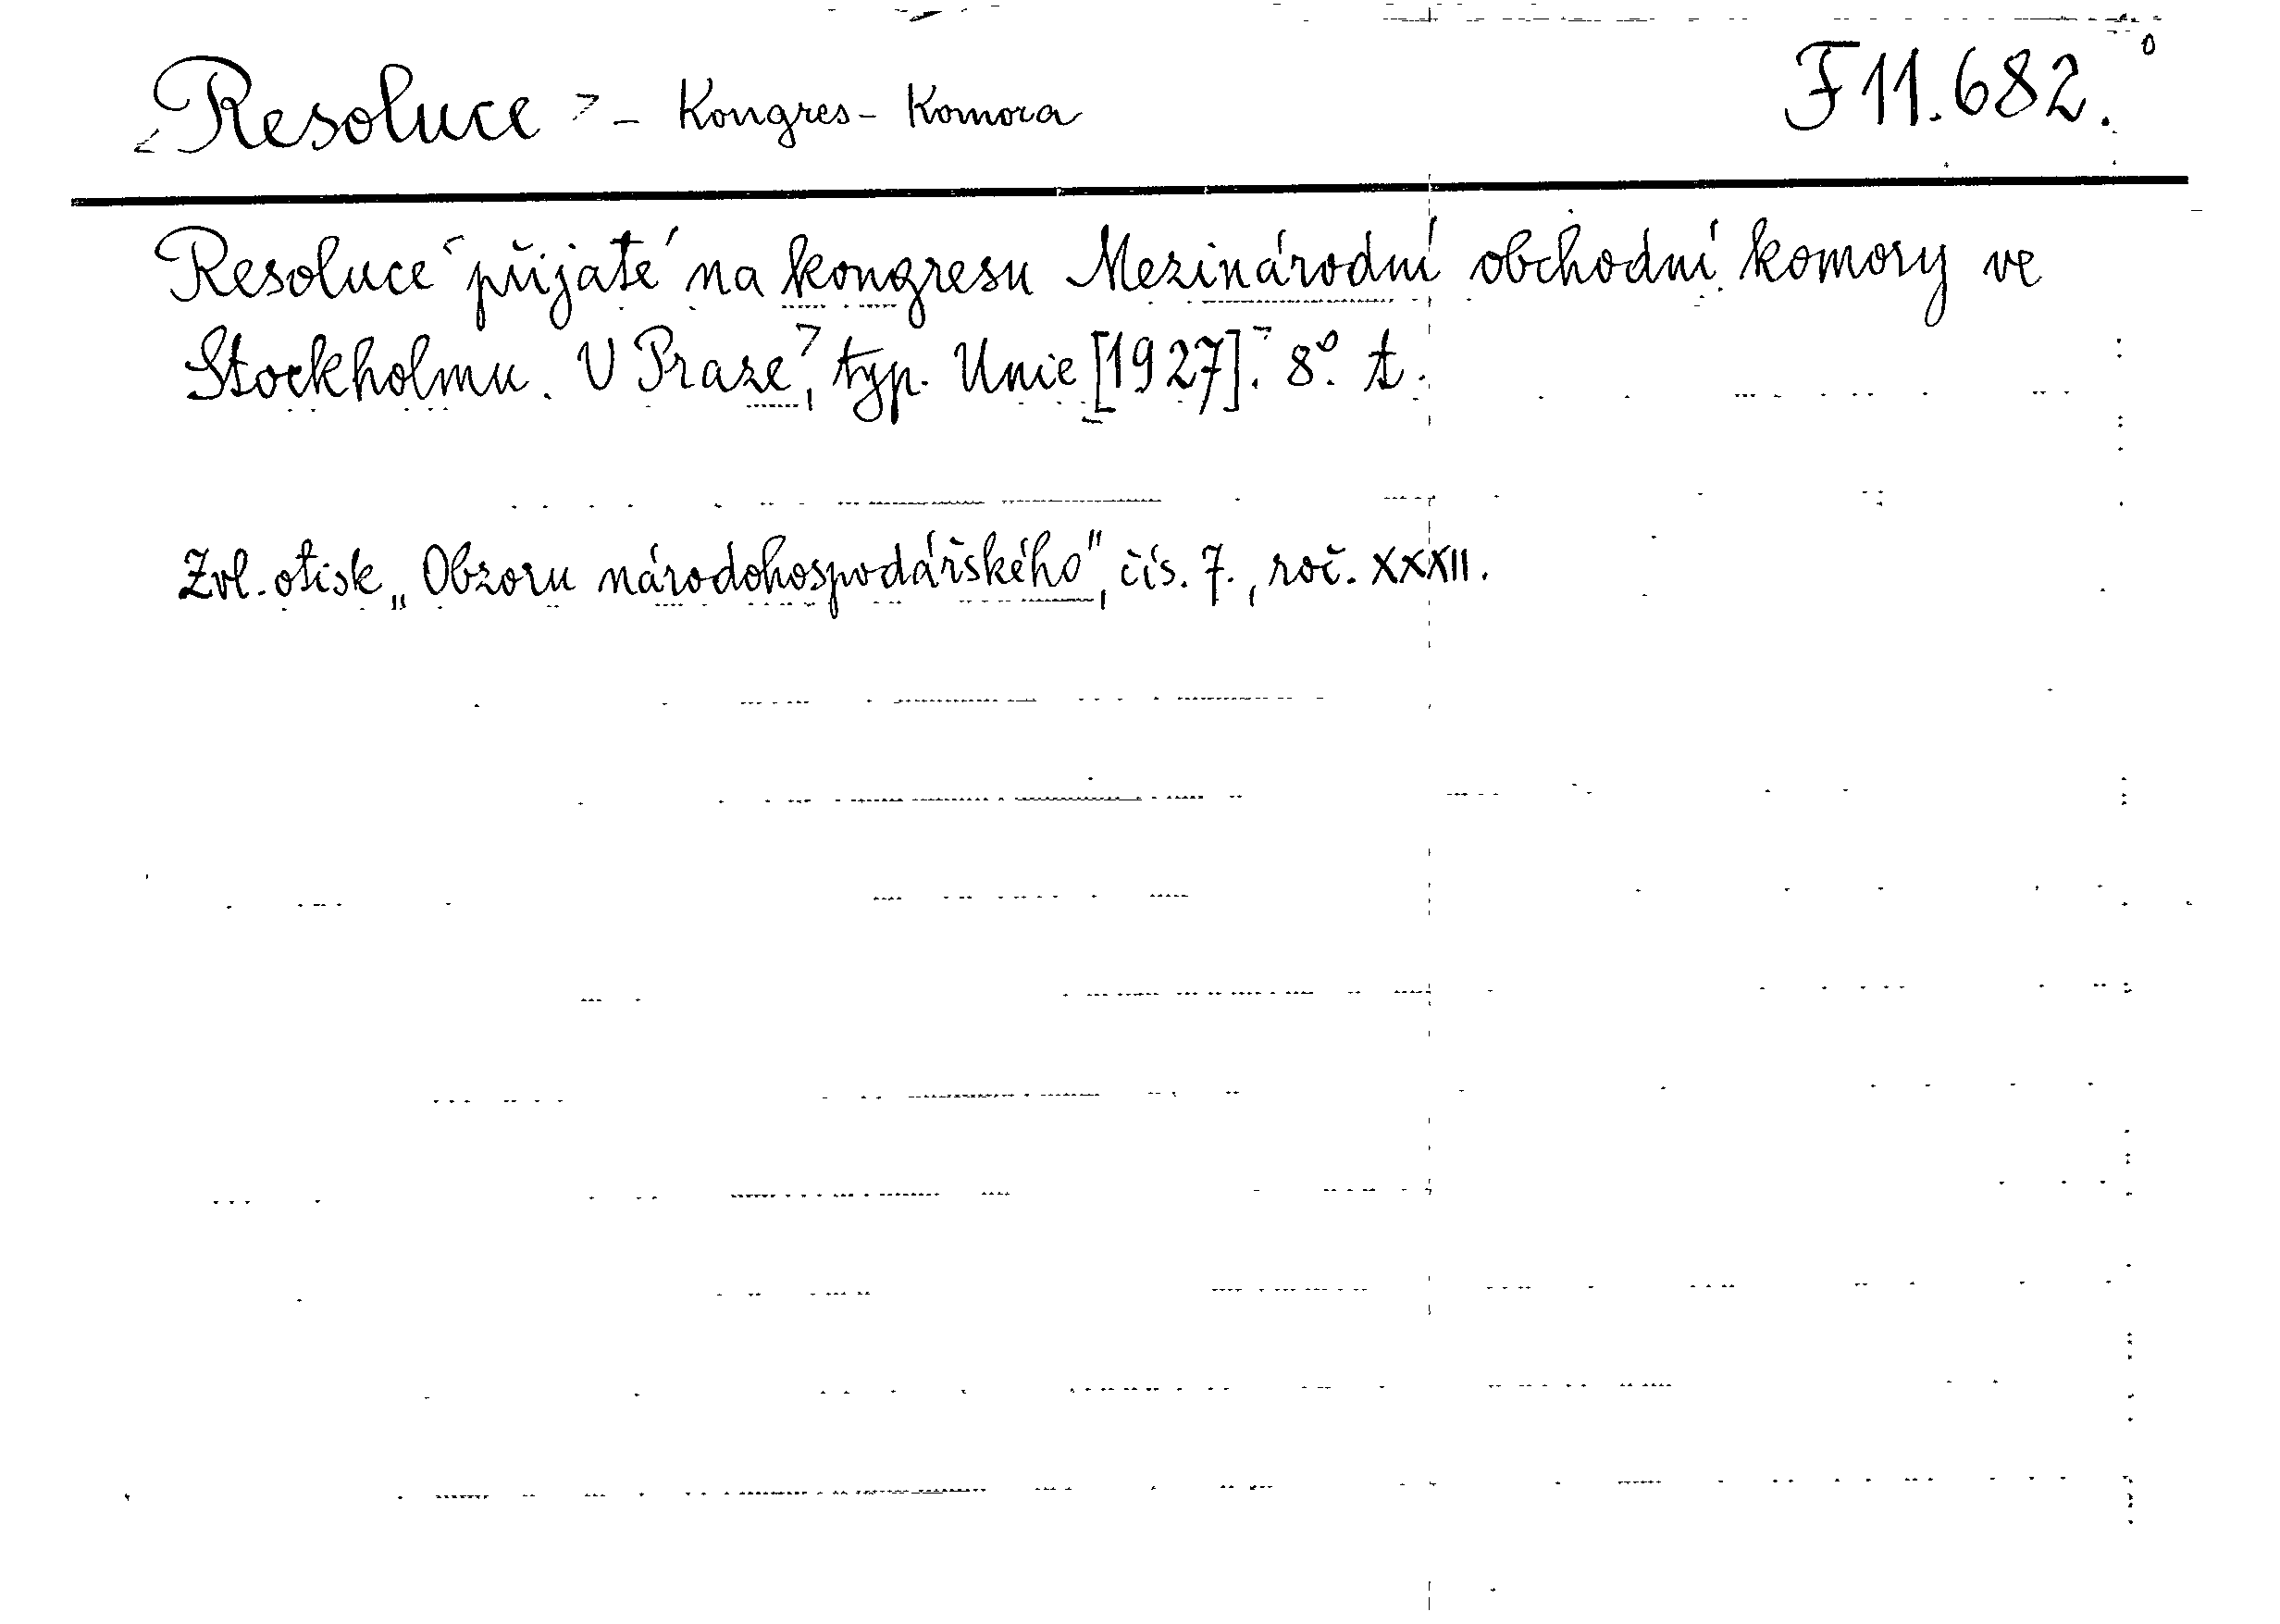 Resoluce - Kongres - Komora F 11.682.
Resoluce přijaté na kongresu Mezinárodní obchodní komory ve
Stockholmu. V Praze, typ. Unie [1927]. 8°. t.
Zvl. otisk „Obzoru národohospodářského", čís. 7., roč. XXXII.